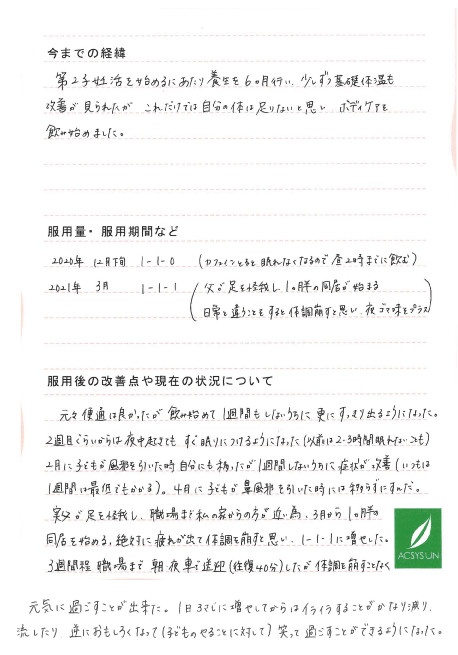 今までの経緯
第2子妊活を始めるにあたり養生を6ヶ月行い、少しずつ基礎体温も
改善が見られたが これだけでは自分の体は足りないと思い ボディケアを
飲み始めました。
服用量・服用期間など
2020年 12月下旬 1-1-0 (カフェインとると眠れなくなるので昼2時までに飲む)
2021年 3月 1-1-1 (父が足を怪我し、1ヶ月の同居が始まる
日常と違うことをすると体調崩すと思い、夜ゴマ味をプラス)
服用後の改善点や現在の状況について
元々便通は良かったが 飲み始めて1週間もしないうちに 更にすっきり出るようになった。
2週目ぐらいからは夜中起きても すぐ眠りにつけるようになった(以前は2-3時間眠れないことも)
2月に子どもが風邪を引いた時 自分にも移ったが1週間しないうちに症状が改善(いつもは
1週間は最低でもかかる)。4月に子どもが鼻風邪を引いた時には移らずにすんだ。
実父が足を怪我し、職場まで私の家からの方が近い為、3月から1ヶ月半の
同居を始める。絶対に疲れが出て体調を崩すと思い、1-1-1に増やした。
3週間程 職場まで 朝・夜 車で送迎(往復40分)したが 体調を崩すことなく
ACSYS'UN
元気に過ごすことが出来た。1日3つに増やしてからはイライラすることがかなり減り、
流したり 逆におもしろくなって(子どものやることに対して)笑って過ごすことができるようになった。